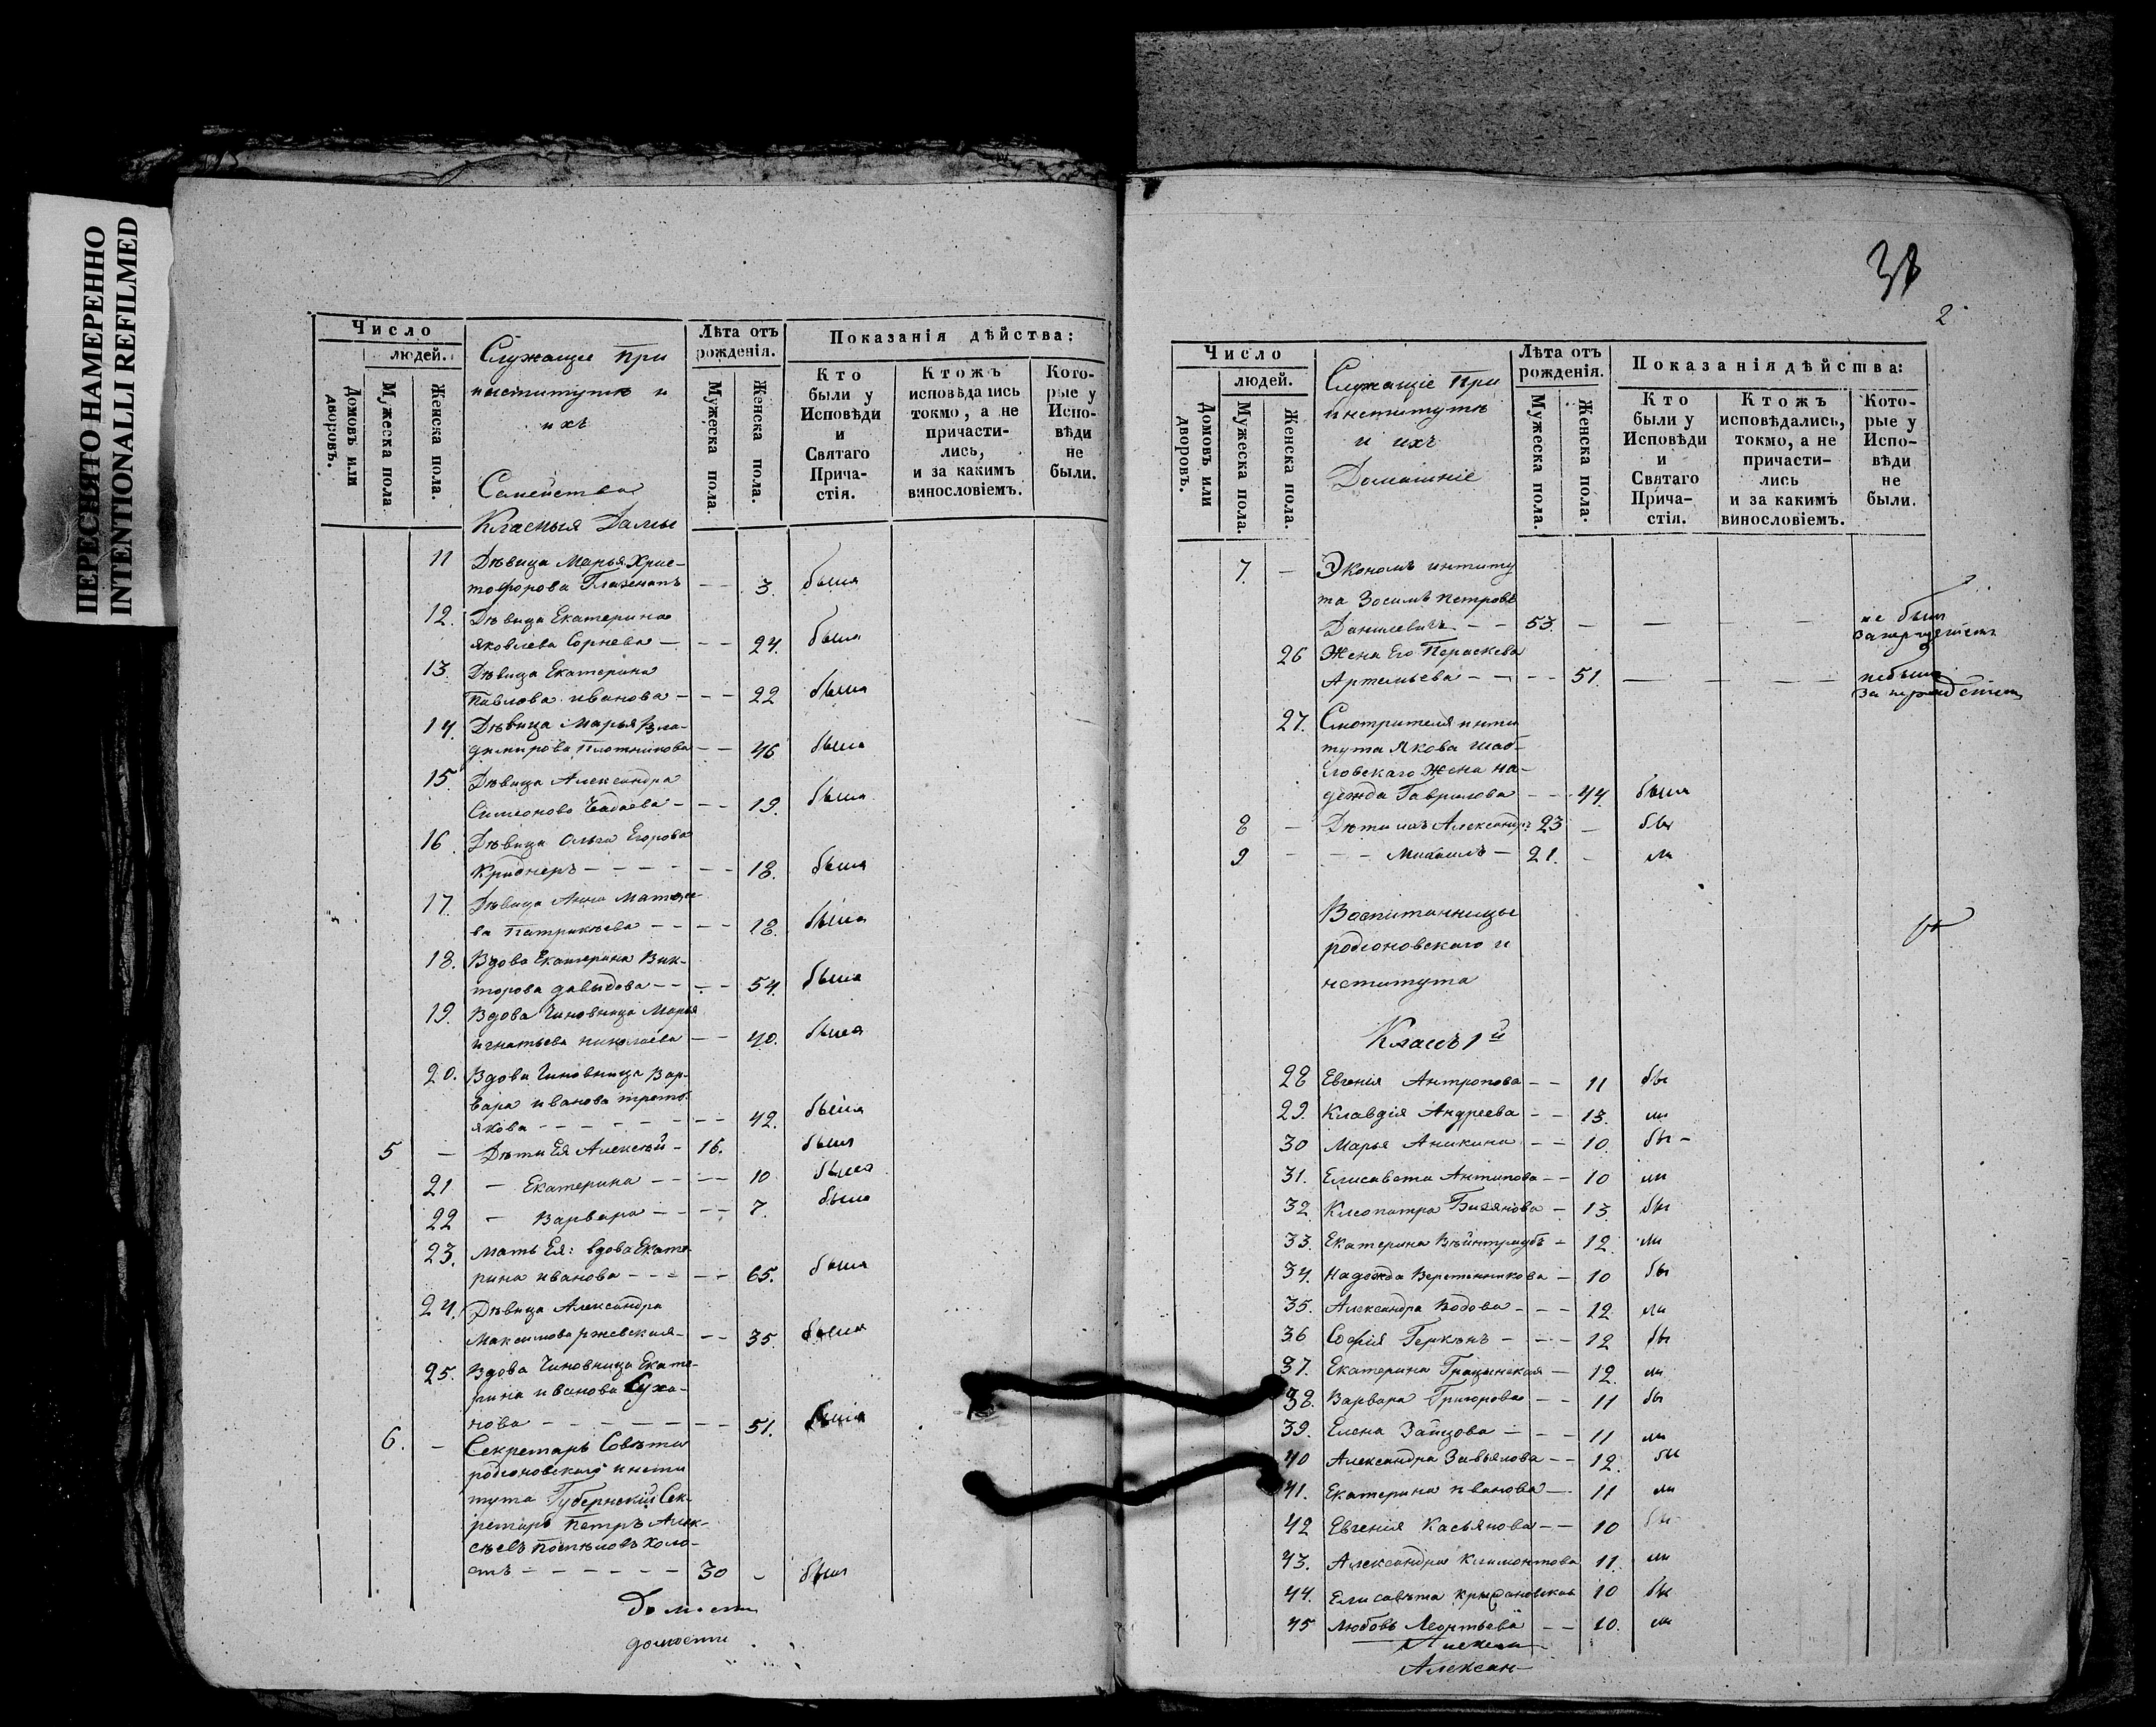 ПЕРЕСНЯТО НАМЕРЕННО
INTENTIONALLI REFILMED
Число
людей.
Домовъ или дворовъ.
Мужеска пола
Женска пола.
Служащіе при
институтѣ и
ихъ
Семейства
Лѣта отъ рожденія.
Мужеска пола.
Женска пола.
Показанія дѣйства:
Кто были у Исповѣди и Святаго Прича-стія.
Ктожъ исповѣдались токмо, а не причасти-лись, и за какимъ винословіемъ.
Кото-рые у Испо-вѣди не были.
Класныя Дамы
11 Дѣвица Марья Хрис-
тофорова Глазенапъ — — 3. была
12. Дѣвица Екатерина
Яковлева Сорнева — — — 24. была
13. Дѣвица Екатерина
Павлова Иванова — — — 22 была
14. Дѣвица Марья Вла-
димирова Плотникова — — 46 была
15. Дѣвица Александра
Симеонова Чадаева — — — 19. была
16. Дѣвица Ольга Егорова
Криднеръ — — — — — — 18. была
17. Дѣвица Анна Матвѣе-
ва Патрикѣева — — — — 18. была
18. Вдова Екатерина Вик-
торова Давыдова — — — — 54. была
19. Вдова Чиновница Марья
Игнатьева Николаева — — — 40. была
20. Вдова Чиновница Вар-
вара Иванова Треть-
якова — — — — — — — 42. была
5 — Дѣти Ея Алексѣй — 16. былъ
21 — Екатерина — — — — 10 была
22 — Варвара — — — — 7. была
23. Мать Ея: вдова Екате-
рина Иванова — — — — — 65. была
24. Дѣвица Александра
Максимова Ржевская — — — 35. была
25. Вдова Чиновница Екате-
рина Иванова Суха-
нова — — — — — — — — 51. была
6. — Секретарь Совѣта
родіоновскаго инсти
тута Губернскій Сек-
ретарь Петръ Алек-
сѣевъ Поспѣловъ холо-
стъ — — — — — — 30 — былъ
домости
38
2
Число
людей.
Домовъ или дворовъ.
Мужеска пола.
Женска пола.
Служащіе При
институтѣ
и ихъ
Домашніе
Лѣта отъ рожденія.
Мужеска пола.
Женска пола.
Показанія дѣйства:
Кто были у Исповѣди и Святаго Прича-стія.
Ктожъ исповѣдались, токмо, а не причасти-лись и за какимъ винословіемъ.
Кото-рые у Испо-вѣди не были.
7. — Экономъ институ
та Зосимъ Петровъ
Данилевичъ — — 53. — — — — не былъ
26 Жена Его Параскева
Артемьева — — — — 51. — — — небыла
27. Смотрителя инсти
тута Якова Шаб-
ловскаго Жена На-
дежда Гаврилова — — — 44. была
8 — Дѣти ихъ Александръ 23 — бы
9 — — — Михаилъ — 21. — ли
Воспитанницы
родіоновскаго и
нститута
Классъ 1й
28 Евгенія Антропова — — 11 бы
29. Клавдія Андреева — — 13. ли
30 Марья Аникина — — 10. бы —
31. Елисавета Антипова — — 10 ли
32. Клеопатра Бизянова — 13. бы
33. Екатерина Вѣйнтраубъ — 12. ли
34. Надежда Веретенникова — 10 бы
35. Александра Водова — — — 12 ли
36 Софія Геркенъ — — — 12 бы
37. Екатерина Грацинская — 12. ли
38. Варвара Григорова — — 11 бы
39. Елена Зайцова — — — 11 ли
40 Александра Завьялова — — 12. бы
41. Екатерина Иванова — 11 ли
42 Евгенія Касьянова — — 10 бы
43. Александра Климонтова 11. ли
44. Елисавѣта Крыжановская 10 бы
45 Любовь Леонтьева — — 10. ли
Алексан-